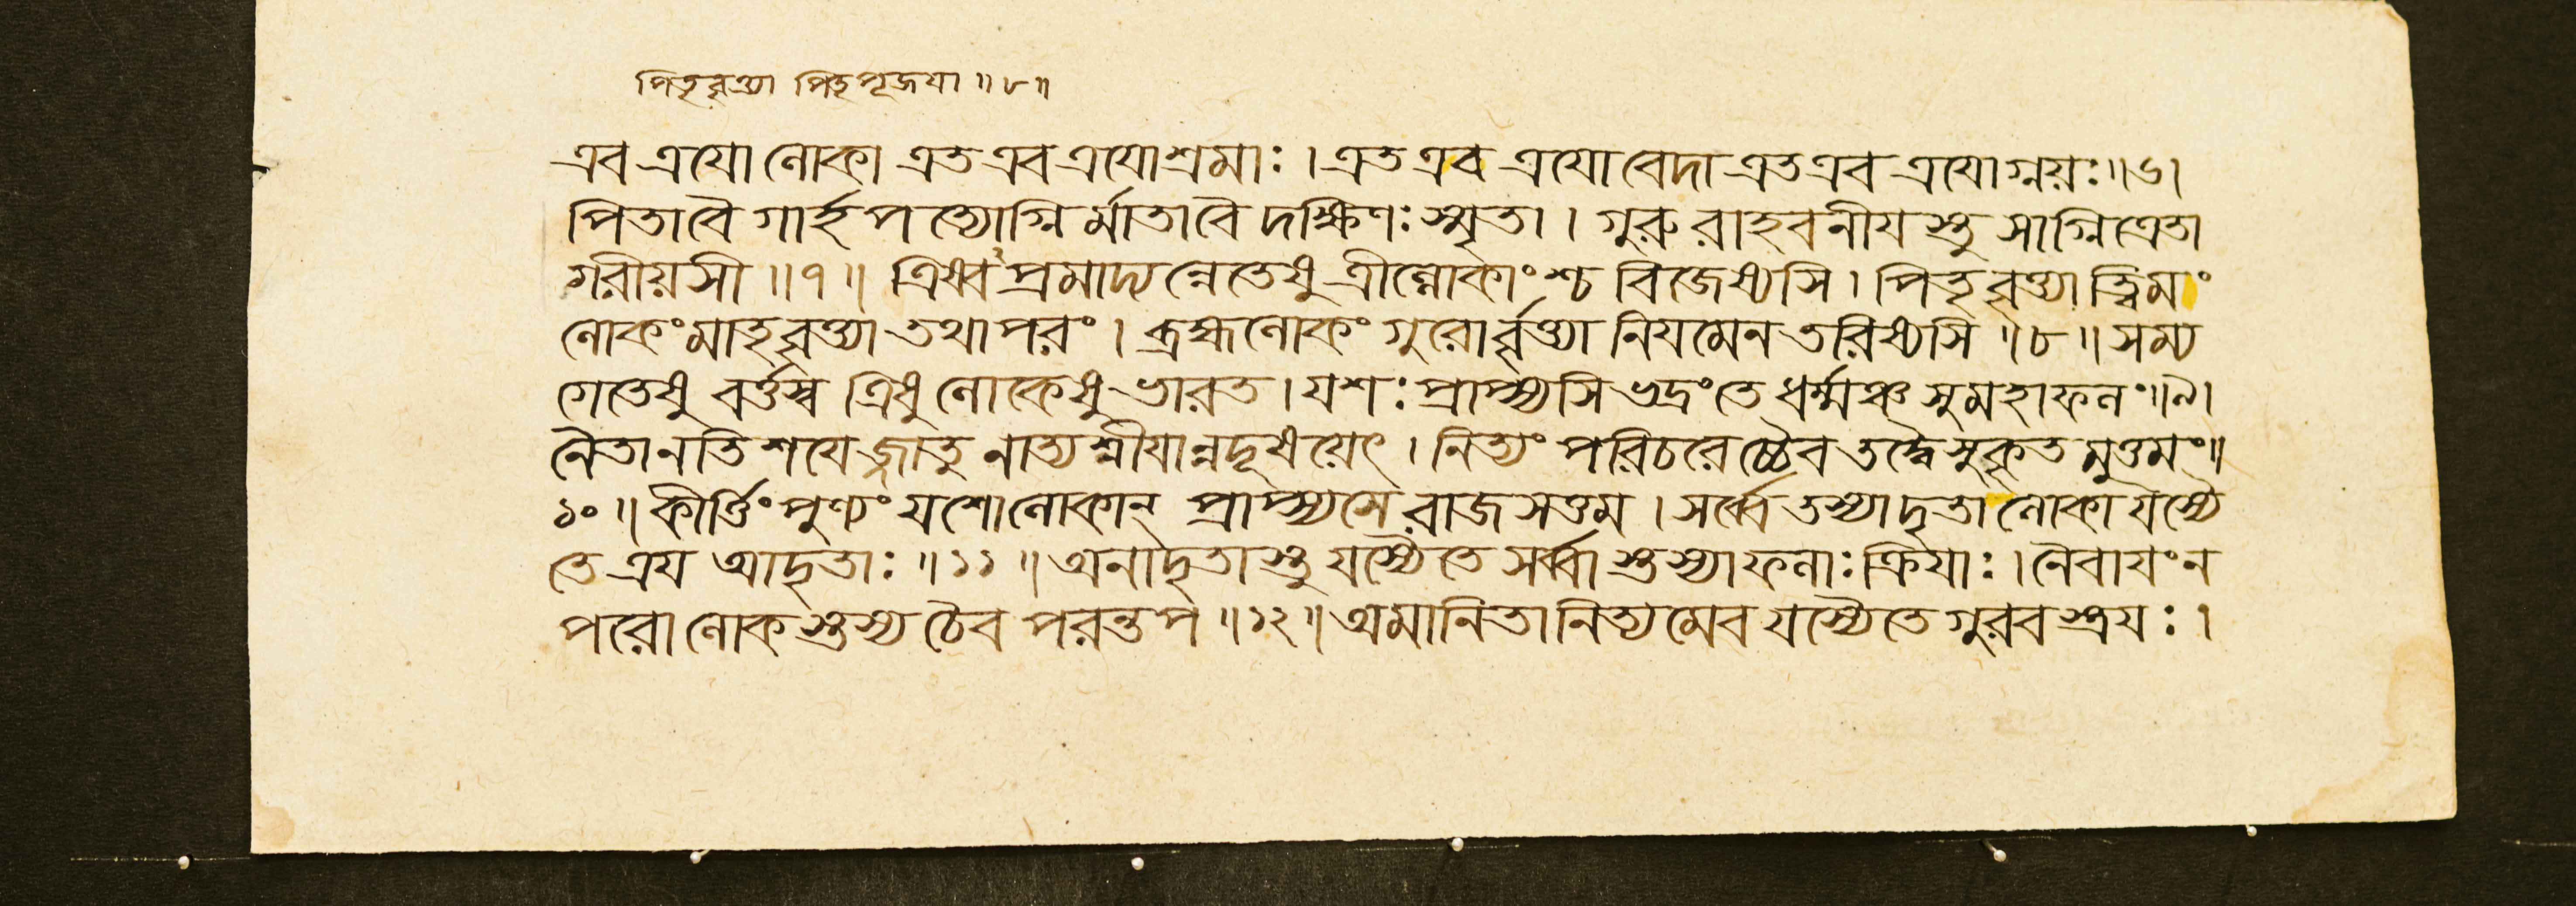 পিতৃবৃত্ত্যা পিতৃপূজযা ॥ ৮ ॥
এব ত্রযো লোকা এত এব ত্রযোশ্রমাঃ । এত এব ত্রযো বেদা এত এব ত্রযোগ্নয়ঃ ॥ ৬ ।
পিতা বৈ গার্হপত্যোগ্নির্মাতা বৈ দক্ষিণঃ স্মৃতা । গুরুরাহবনীযস্তু সাগ্নিত্রেতা
গরীয়সী ॥ ৭ ॥ ত্রিষ্বপ্রমাদ্যন্নেতেষু ত্রীল্লোকাংশ্চ বিজেষ্যসি । পিতৃবৃত্ত্যা ত্বিমাং
লোকং মাতৃবৃত্ত্যা তথাপরং । ব্রহ্মলোকং গুরোর্বৃত্ত্যা নিযমেন তরিষ্যসি ॥ ৮ ॥ সম্য
গেতেষু বর্ত্তস্ব ত্রিষু লোকেষু ভারত । যশঃ প্রাপ্স্যসি ভদ্রং তে ধর্ম্মঞ্চ সুমহাফলং ॥ ৯ ।
নৈতানতিশযেজ্জাতু নাত্যশ্নীযান্নদূষয়েৎ । নিত্যং পরিচরেচ্চৈব তদ্বৈ সুকৃতমুত্তমং ॥
১০ ॥ কীর্ত্তিং পুণ্যং যশো লোকান্ প্রাপ্স্যসে রাজসত্তম । সর্ব্বে তস্যাদৃতা লোকা যস্যৈ
তে ত্রয আদৃতাঃ ॥ ১১ ॥ অনাদৃতাস্তু যস্যৈতে সর্ব্বাস্তস্যাফলাঃ ক্রিযাঃ । নৈবাযং ন
পরো লোকস্তস্য চৈব পরন্তপ ॥ ১২ ॥ অমানিতা নিত্যমেব যস্যৈতে গুরবস্ত্রযঃ ।